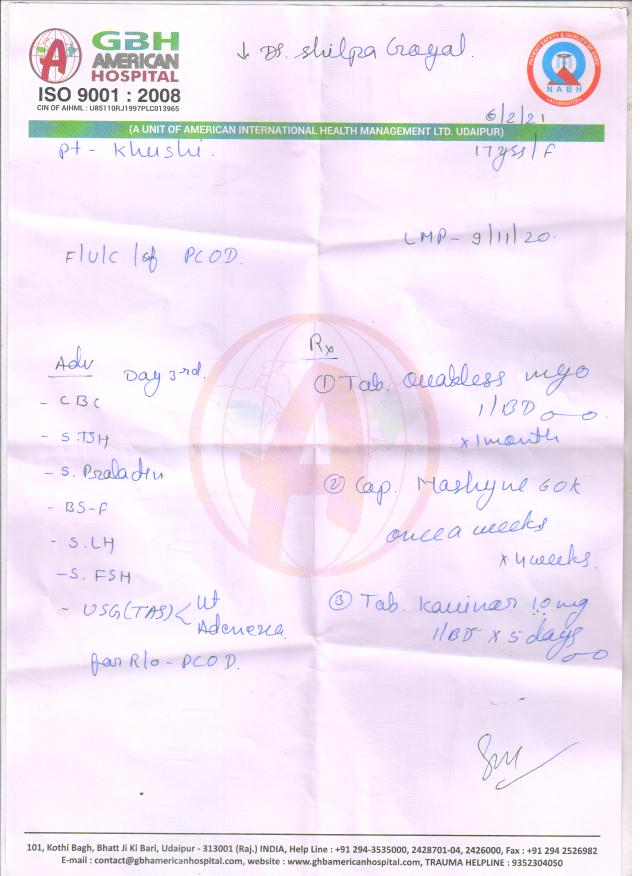 GBH
AMERICAN
HOSPITAL
ISO 9001 : 2008
CIN OF AIHML : U85110RJ1997PLC013965
↓ Dr. Shilpa Goyal.
PATIENT SAFETY & QUALITY OF CARE
NABH
ACCREDITATION
6/2/21
(A UNIT OF AMERICAN INTERNATIONAL HEALTH MANAGEMENT LTD. UDAIPUR)
Pt - Khushi.
17 yrs/F
LMP - 9/11/20.
F/U/C/of PCOD.
Adv Day 3rd.
- CBC
- S.TSH
- S. Prolactin
- BS-F
- S.LH
- S. FSH
- USG(TAS) < Ut
Adenexa
for R/o - PCOD.
Rx
① Tab. myo
1/BD
x 1 month
② Cap. 60K
once a weeks
x 4 weeks.
③ Tab. 10 mg
1/BD x 5 days
101, Kothi Bagh, Bhatt Ji Ki Bari, Udaipur - 313001 (Raj.) INDIA, Help Line : +91 294-3535000, 2428701-04, 2426000, Fax : +91 294 2526982
E-mail : contact@gbhamericanhospital.com, website : www.gbhamericanhospital.com, TRAUMA HELPLINE : 9352304050